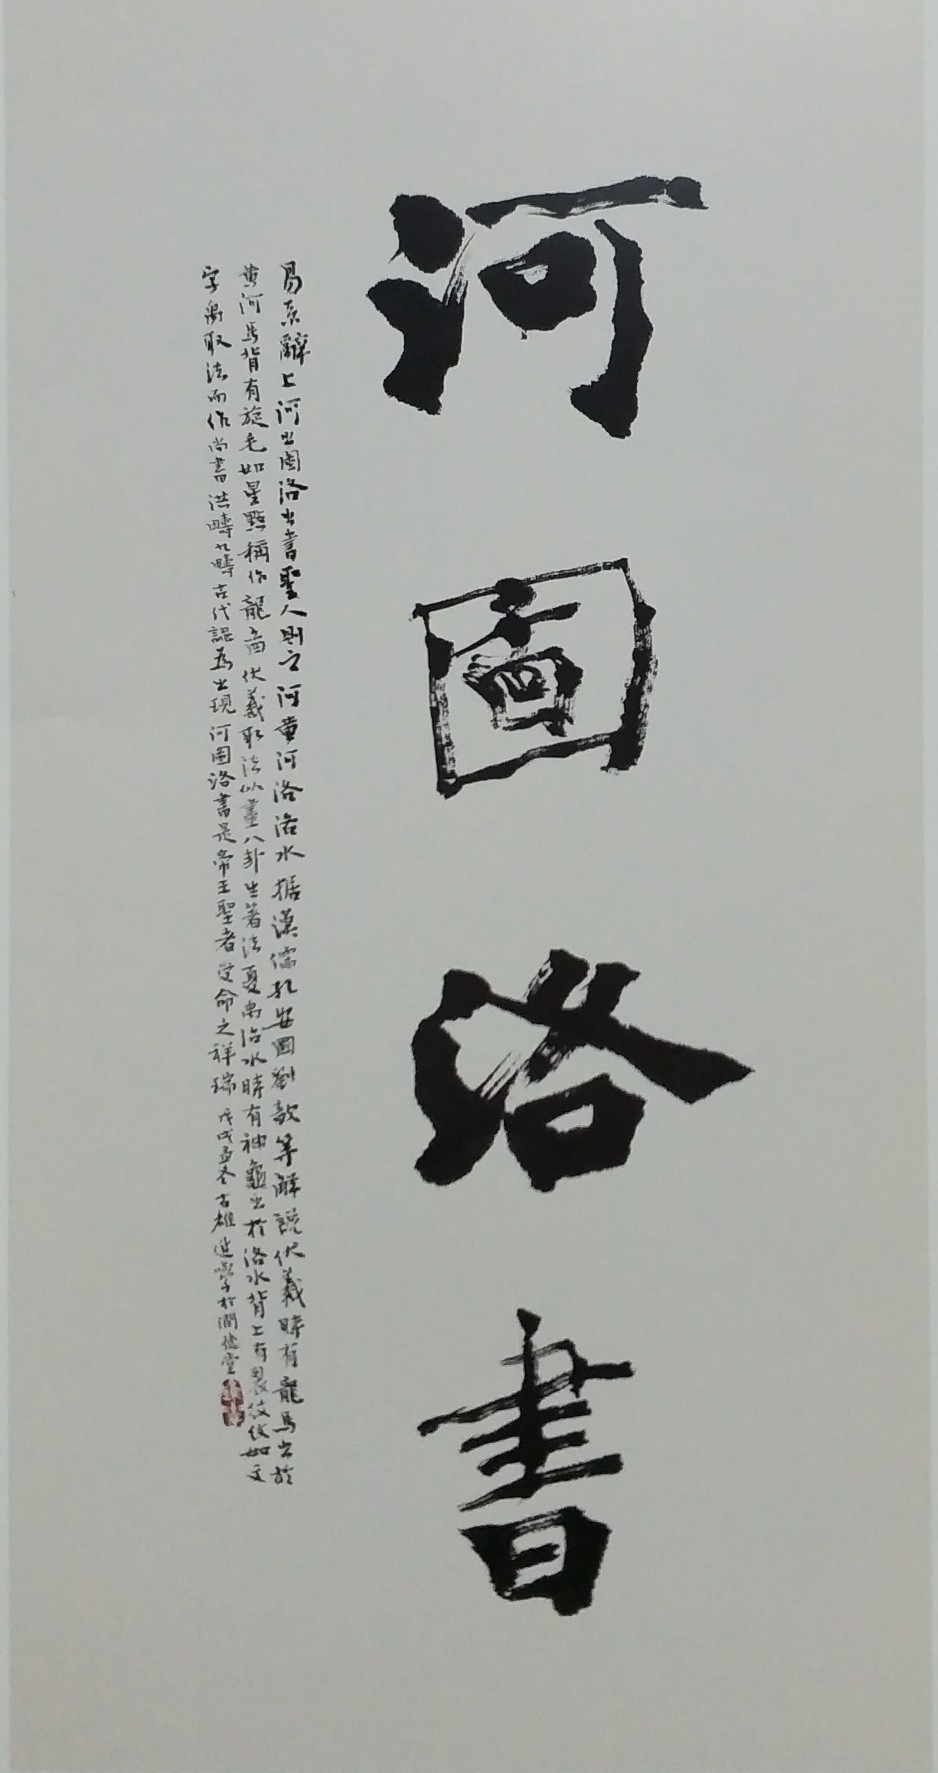 河圖洛書
易系辭上河出圖洛出書聖人則之河黄河洛洛水据漢儒孔安國劉歆等解説伏羲時有龍馬出於
黄河馬背有旋毛如星點稱作龍圖伏羲取法以畫八卦生蓍法夏禹治水時有神龜出於洛水背上有裂紋紋如文
字禹取法而作尚書洪疇九疇古代認爲出現河圖洛書是帝王聖者受命之祥瑞戊戌孟冬古雄進學於澗德堂